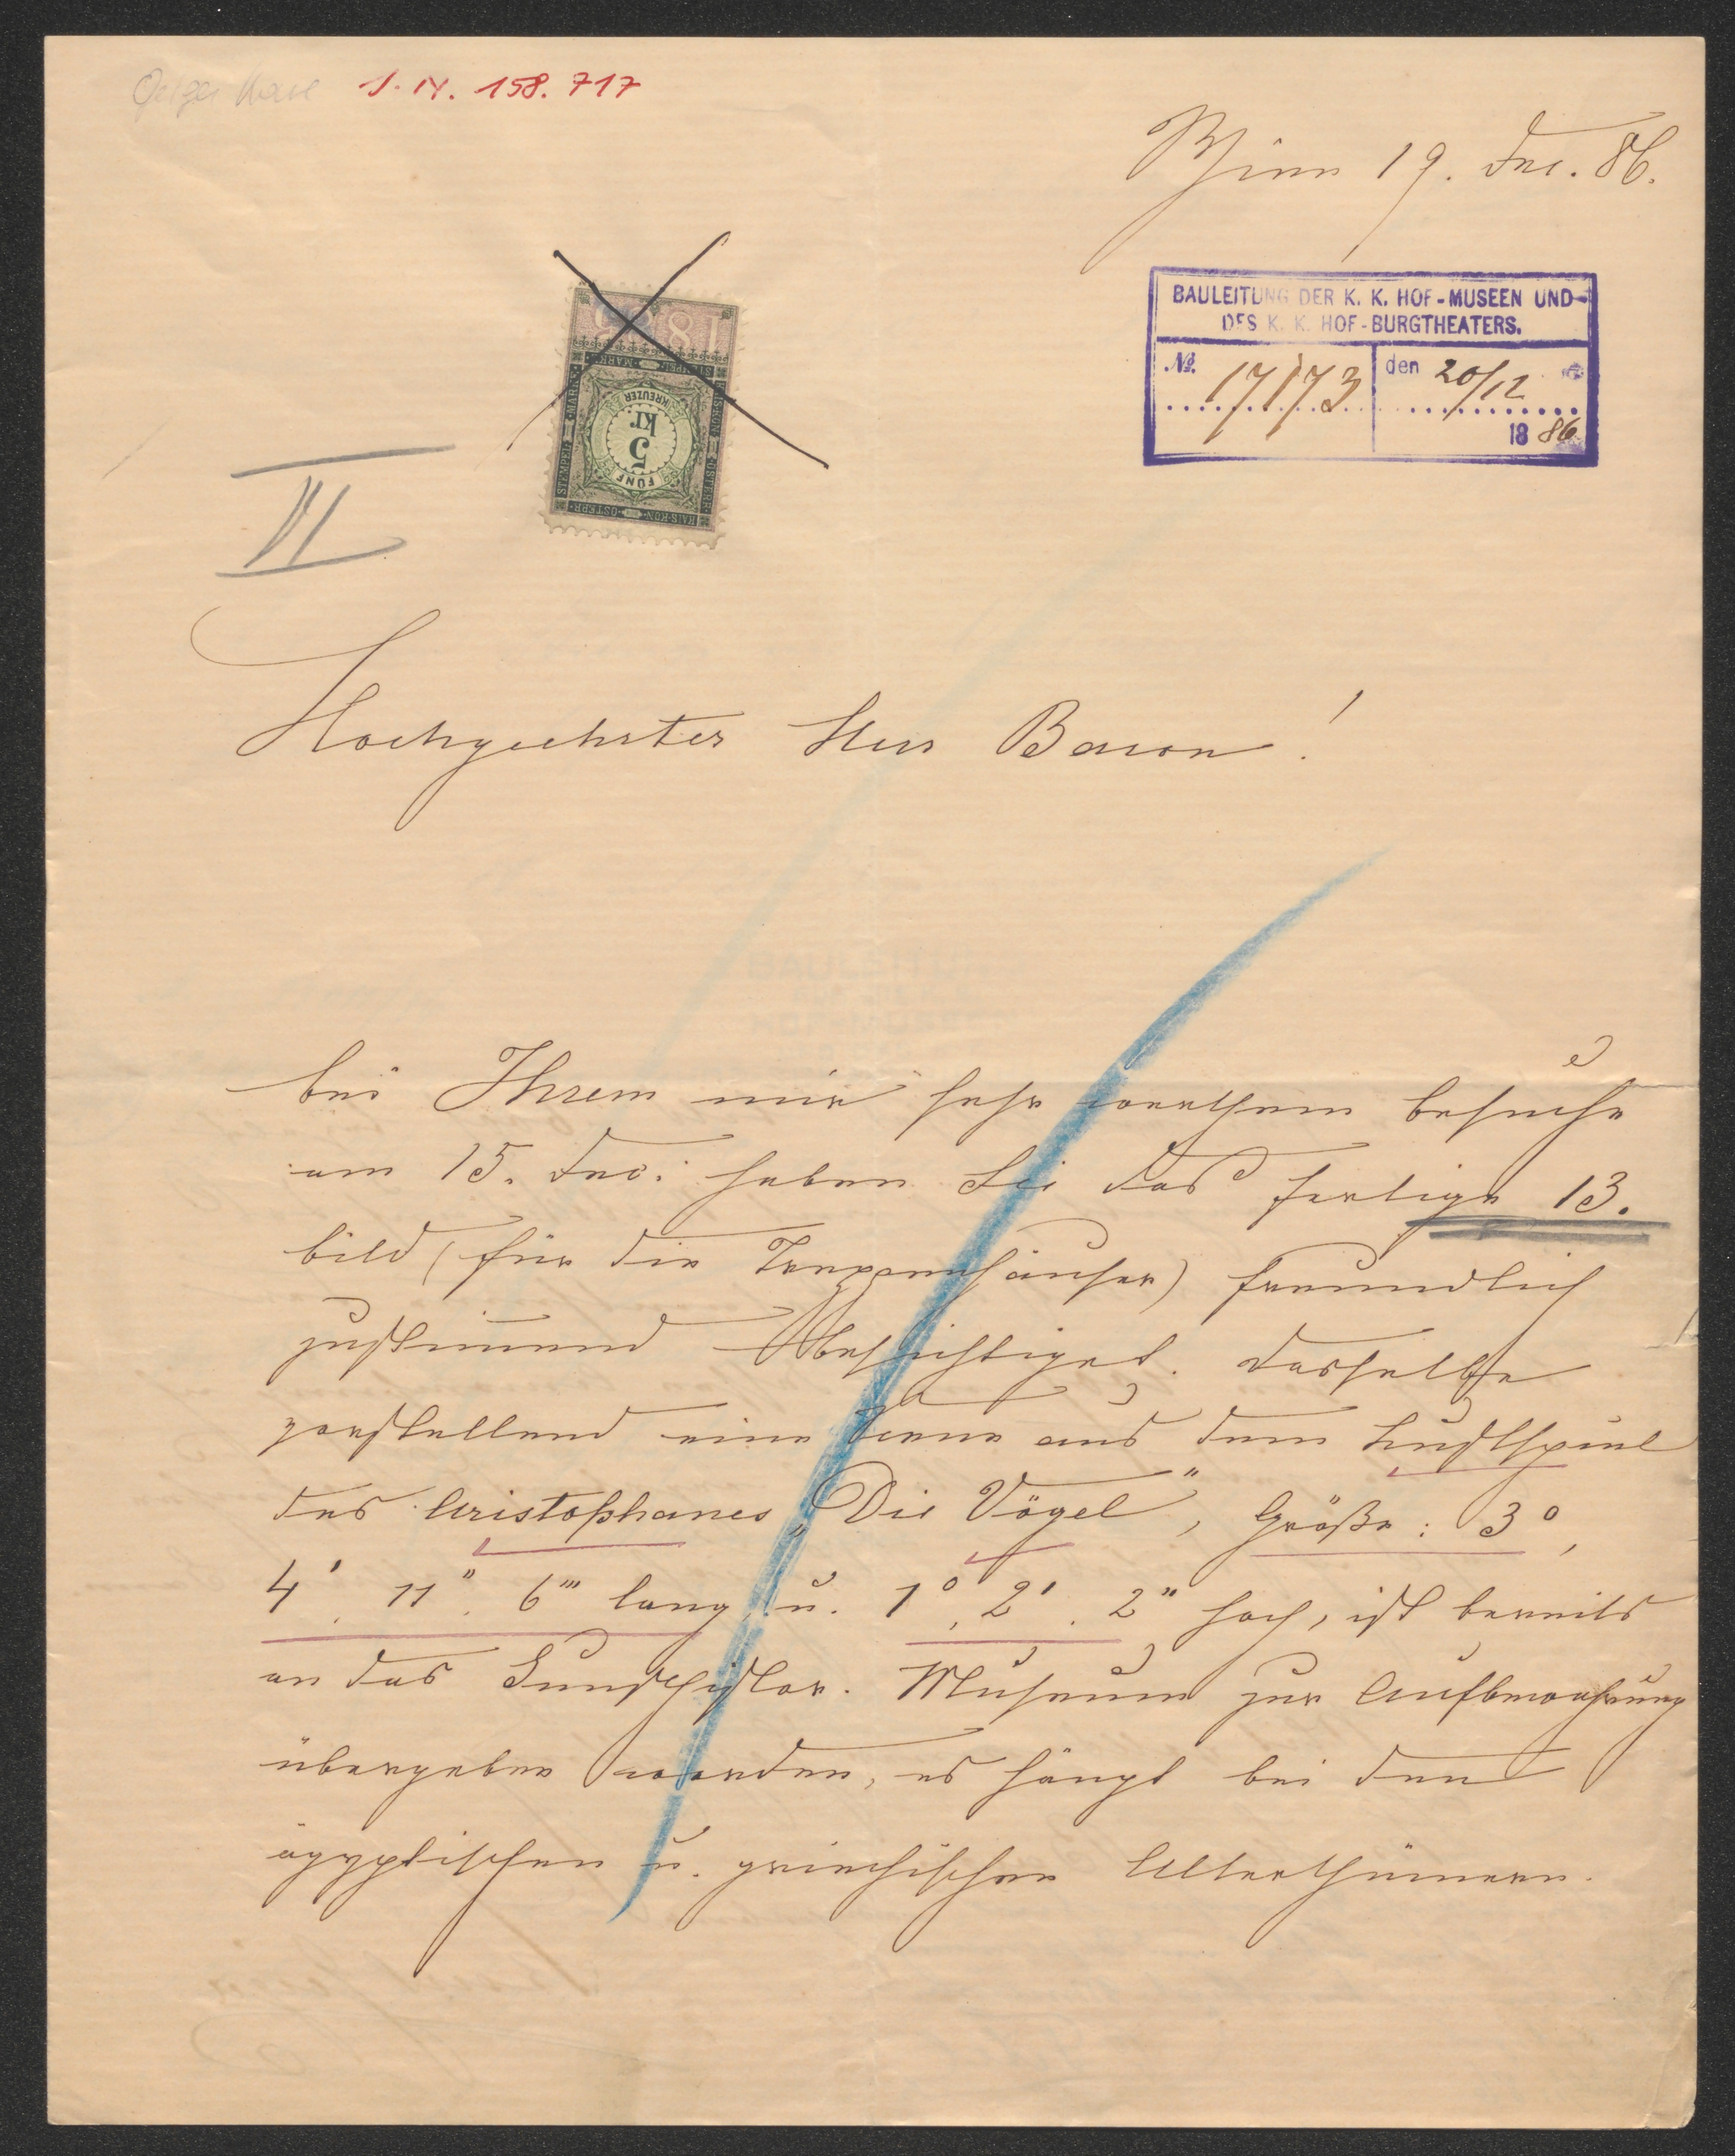 Geiger Karl I. N. 158.717
Wien 19. Dec. 86.
BAULEITUNG DER K. K. HOF-MUSEEN UND
DES K. K. HOF-BURGTHEATERS.
№. 17173 den 20/12
1886
1885
STEMPEL-MARKE
KAIS·KÖN·ÖSTERR·
FÜNF KREUZER
5 kr
VI
Hochgeehrter Herr Baron!
bei Ihrem mir sehr werthem Besuche
am 15. Dec. haben Sie das fertige 13.
Bild (für die Treppenhäuser) freundlich
zustimmend besichtiget. Dasselbe
vorstellend eine Scene aus dem Lustspiel
des Aristophanes „Die Vögel", Größe: 3°,
4', 11", 6"' lang, u. 1°, 2', 2" hoch, ist bereits
an das Kunsthistor. Museum zur Aufbewahrung
übergeben worden, es hängt bei den
ägyptischen u. griechischen Alterthümern.